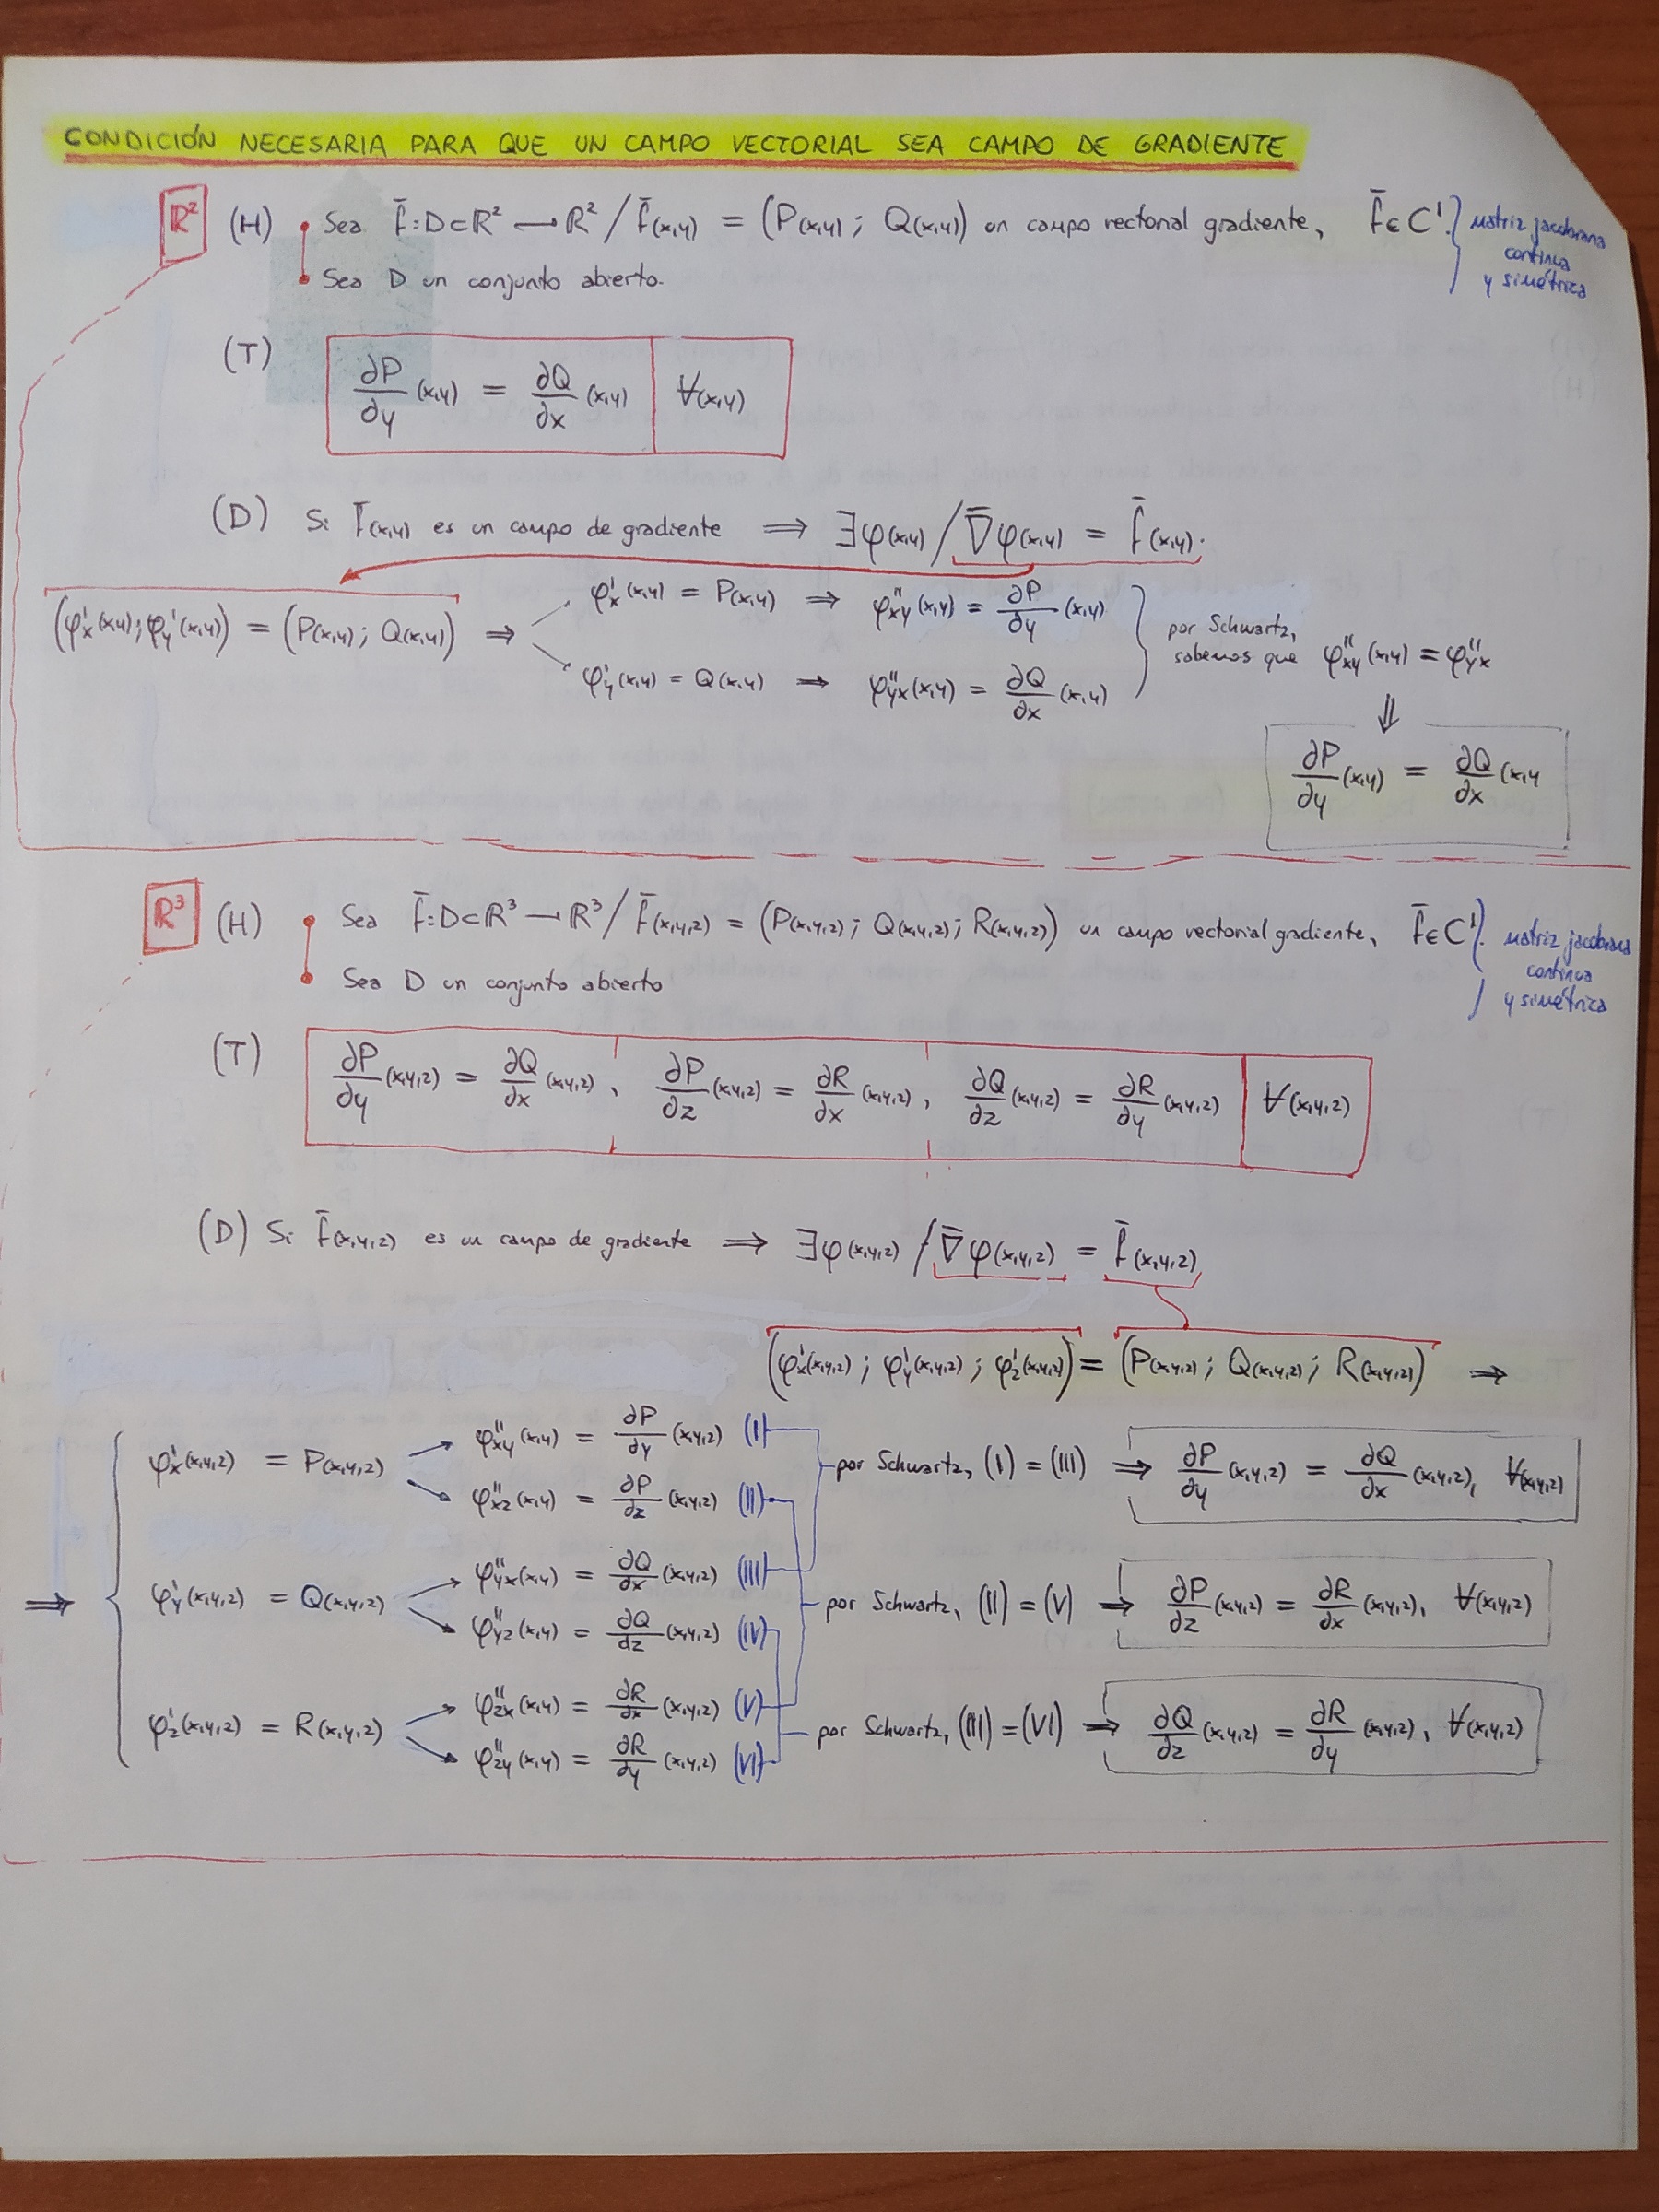 CONDICIÓN NECESARIA PARA QUE UN CAMPO VECTORIAL SEA CAMPO DE GRADIENTE
ℝ² (H) • Sea f̄:D⊂ℝ² → ℝ² / f̄(x,y) = (P(x,y) ; Q(x,y)) un campo vectorial gradiente, f̄ ∈ C¹. } matriz jacobiana
continua
y simétrica
• Sea D un conjunto abierto.
(T) ∂P/∂y (x,y) = ∂Q/∂x (x,y) | ∀(x,y)
(D) Si f̄(x,y) es un campo de gradiente ⇒ ∃φ(x,y) / ∇̄φ(x,y) = f̄(x,y).
(φ'x(x,y) ; φy'(x,y)) = (P(x,y) ; Q(x,y)) ⇒
φ'x(x,y) = P(x,y) ⇒ φ''xy(x,y) = ∂P/∂y (x,y)
φ'y(x,y) = Q(x,y) ⇒ φ''yx(x,y) = ∂Q/∂x (x,y)
por Schwartz,
sabemos que φ''xy(x,y) = φ''yx
⇓
∂P/∂y (x,y) = ∂Q/∂x (x,y
ℝ³ (H) • Sea f̄:D⊂ℝ³ → ℝ³ / f̄(x,y,z) = (P(x,y,z) ; Q(x,y,z) ; R(x,y,z)) un campo vectorial gradiente, f̄ ∈ C¹. } matriz jacobiana
continua
y simétrica
• Sea D un conjunto abierto
(T) ∂P/∂y (x,y,z) = ∂Q/∂x (x,y,z), ∂P/∂z (x,y,z) = ∂R/∂x (x,y,z), ∂Q/∂z (x,y,z) = ∂R/∂y (x,y,z) | ∀(x,y,z)
(D) Si f̄(x,y,z) es un campo de gradiente ⇒ ∃φ(x,y,z) / ∇̄φ(x,y,z) = f̄(x,y,z)
(φ'x(x,y,z) ; φ'y(x,y,z) ; φ'z(x,y,z)) = (P(x,y,z) ; Q(x,y,z) ; R(x,y,z)) ⇒
⇒ { φ'x(x,y,z) = P(x,y,z)
φ''xy(x,y) = ∂P/∂y (x,y,z) (I)
φ''xz(x,y) = ∂P/∂z (x,y,z) (II)
φ'y(x,y,z) = Q(x,y,z)
φ''yx(x,y) = ∂Q/∂x (x,y,z) (III)
φ''yz(x,y) = ∂Q/∂z (x,y,z) (IV)
φ'z(x,y,z) = R(x,y,z)
φ''zx(x,y) = ∂R/∂x (x,y,z) (V)
φ''zy(x,y) = ∂R/∂y (x,y,z) (VI)
por Schwartz, (I) = (III) ⇒ ∂P/∂y (x,y,z) = ∂Q/∂x (x,y,z), ∀(x,y,z)
por Schwartz, (II) = (V) ⇒ ∂P/∂z (x,y,z) = ∂R/∂x (x,y,z), ∀(x,y,z)
por Schwartz, (III) = (VI) ⇒ ∂Q/∂z (x,y,z) = ∂R/∂y (x,y,z), ∀(x,y,z)